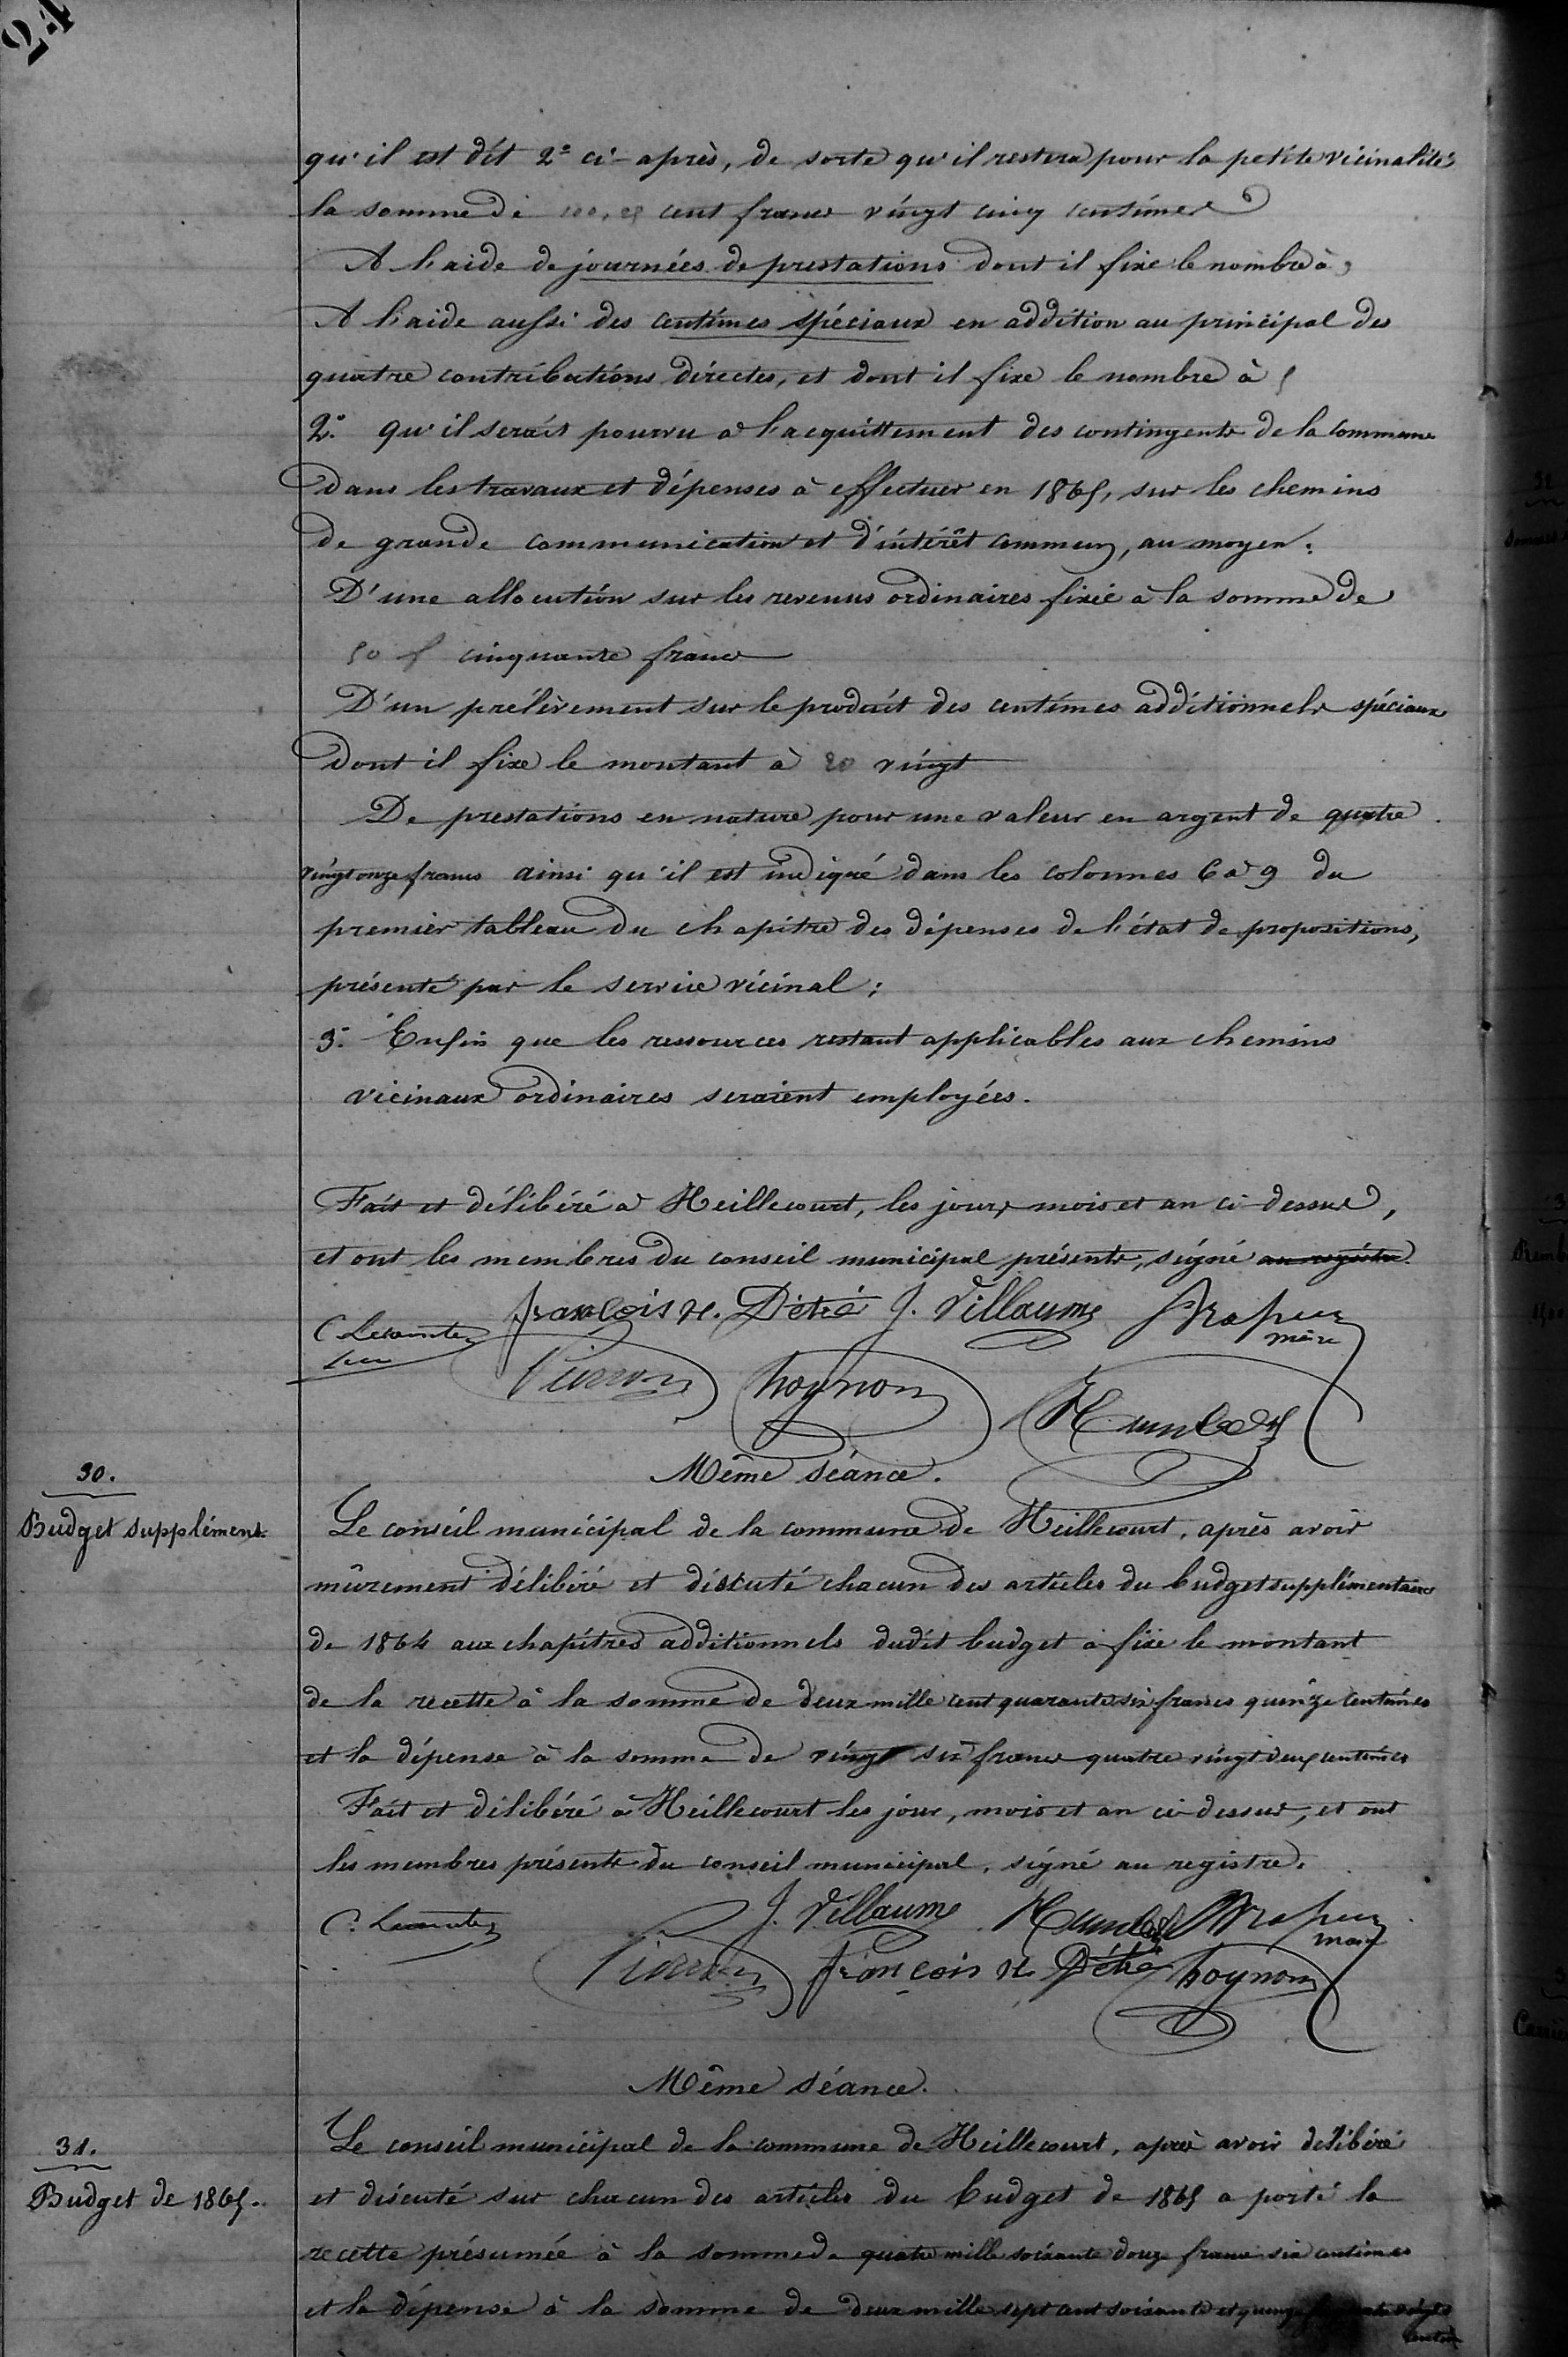 24
qu'il est dit 2° ci-après, de sorte qu'il restera pour la petite vicinalité
la somme de 100,25 cent francs vingt cinq centimes
A l'aide de journées de prestations dont il fixe le nombre à 3
A l'aide aussi des centimes spéciaux en addition au principal des
quatre contributions directes, et dont il fixe le nombre à 5
2° qu'il serait pourvu à l'acquittement des contingents de la commune
dans les travaux et dépenses à effectuer en 1865, sur les chemins
de grande communication et d'intérêt commun, au moyen :
D'une allocution sur les revenus ordinaires fixée à la somme de
50 f cinquante francs
D'un prélèvement sur le produit des centimes additionnels spéciaux
dont il fixe le montant à 20 vingt
De prestations en nature pour une valeur en argent de quatre
vingt onze francs ainsi qu'il est indiqué dans les colonnes 6 à 9 du
premier tableau du chapitre des dépenses de l'état de propositions,
présenté par le service vicinal ;
3° Enfin que les ressources restant applicables aux chemins
vicinaux ordinaires seraient employées.
Fait et délibéré à Heillecourt, les jour, mois et an ci-dessus,
et ont les membres du conseil municipal présents, signé au registre.
C Lecomte François N. Détré J. Villaume
maire
Pierron thoynon
Même séance.
30.
Budget supplément.
Le conseil municipal de la commune de Heillecourt, après avoir
mûrement délibéré et discuté chacun des articles du budget supplémentaire
de 1864 aux chapitres additionnels dudit budget a fixé le montant
de la recette à la somme de deux mille cent quarante six francs quinze centimes
et la dépense à la somme de vingt six francs quatre vingt deux centimes
Fait et délibéré à Heillecourt les jour, mois et an ci-dessus, et ont
les membres présents du conseil municipal, signé au registre.
C. Lecomte J. Villaume
maire
Pierron François N. Détré thoynon
Même séance.
31.
Budget de 1865.
Le conseil municipal de la commune de Heillecourt, après avoir délibéré
et discuté sur chacun des articles du budget de 1865 a porté la
recette présumée à la somme de quatre mille soixante douze francs six centimes
et la dépense à la somme de deux mille sept cent soixante et quinze